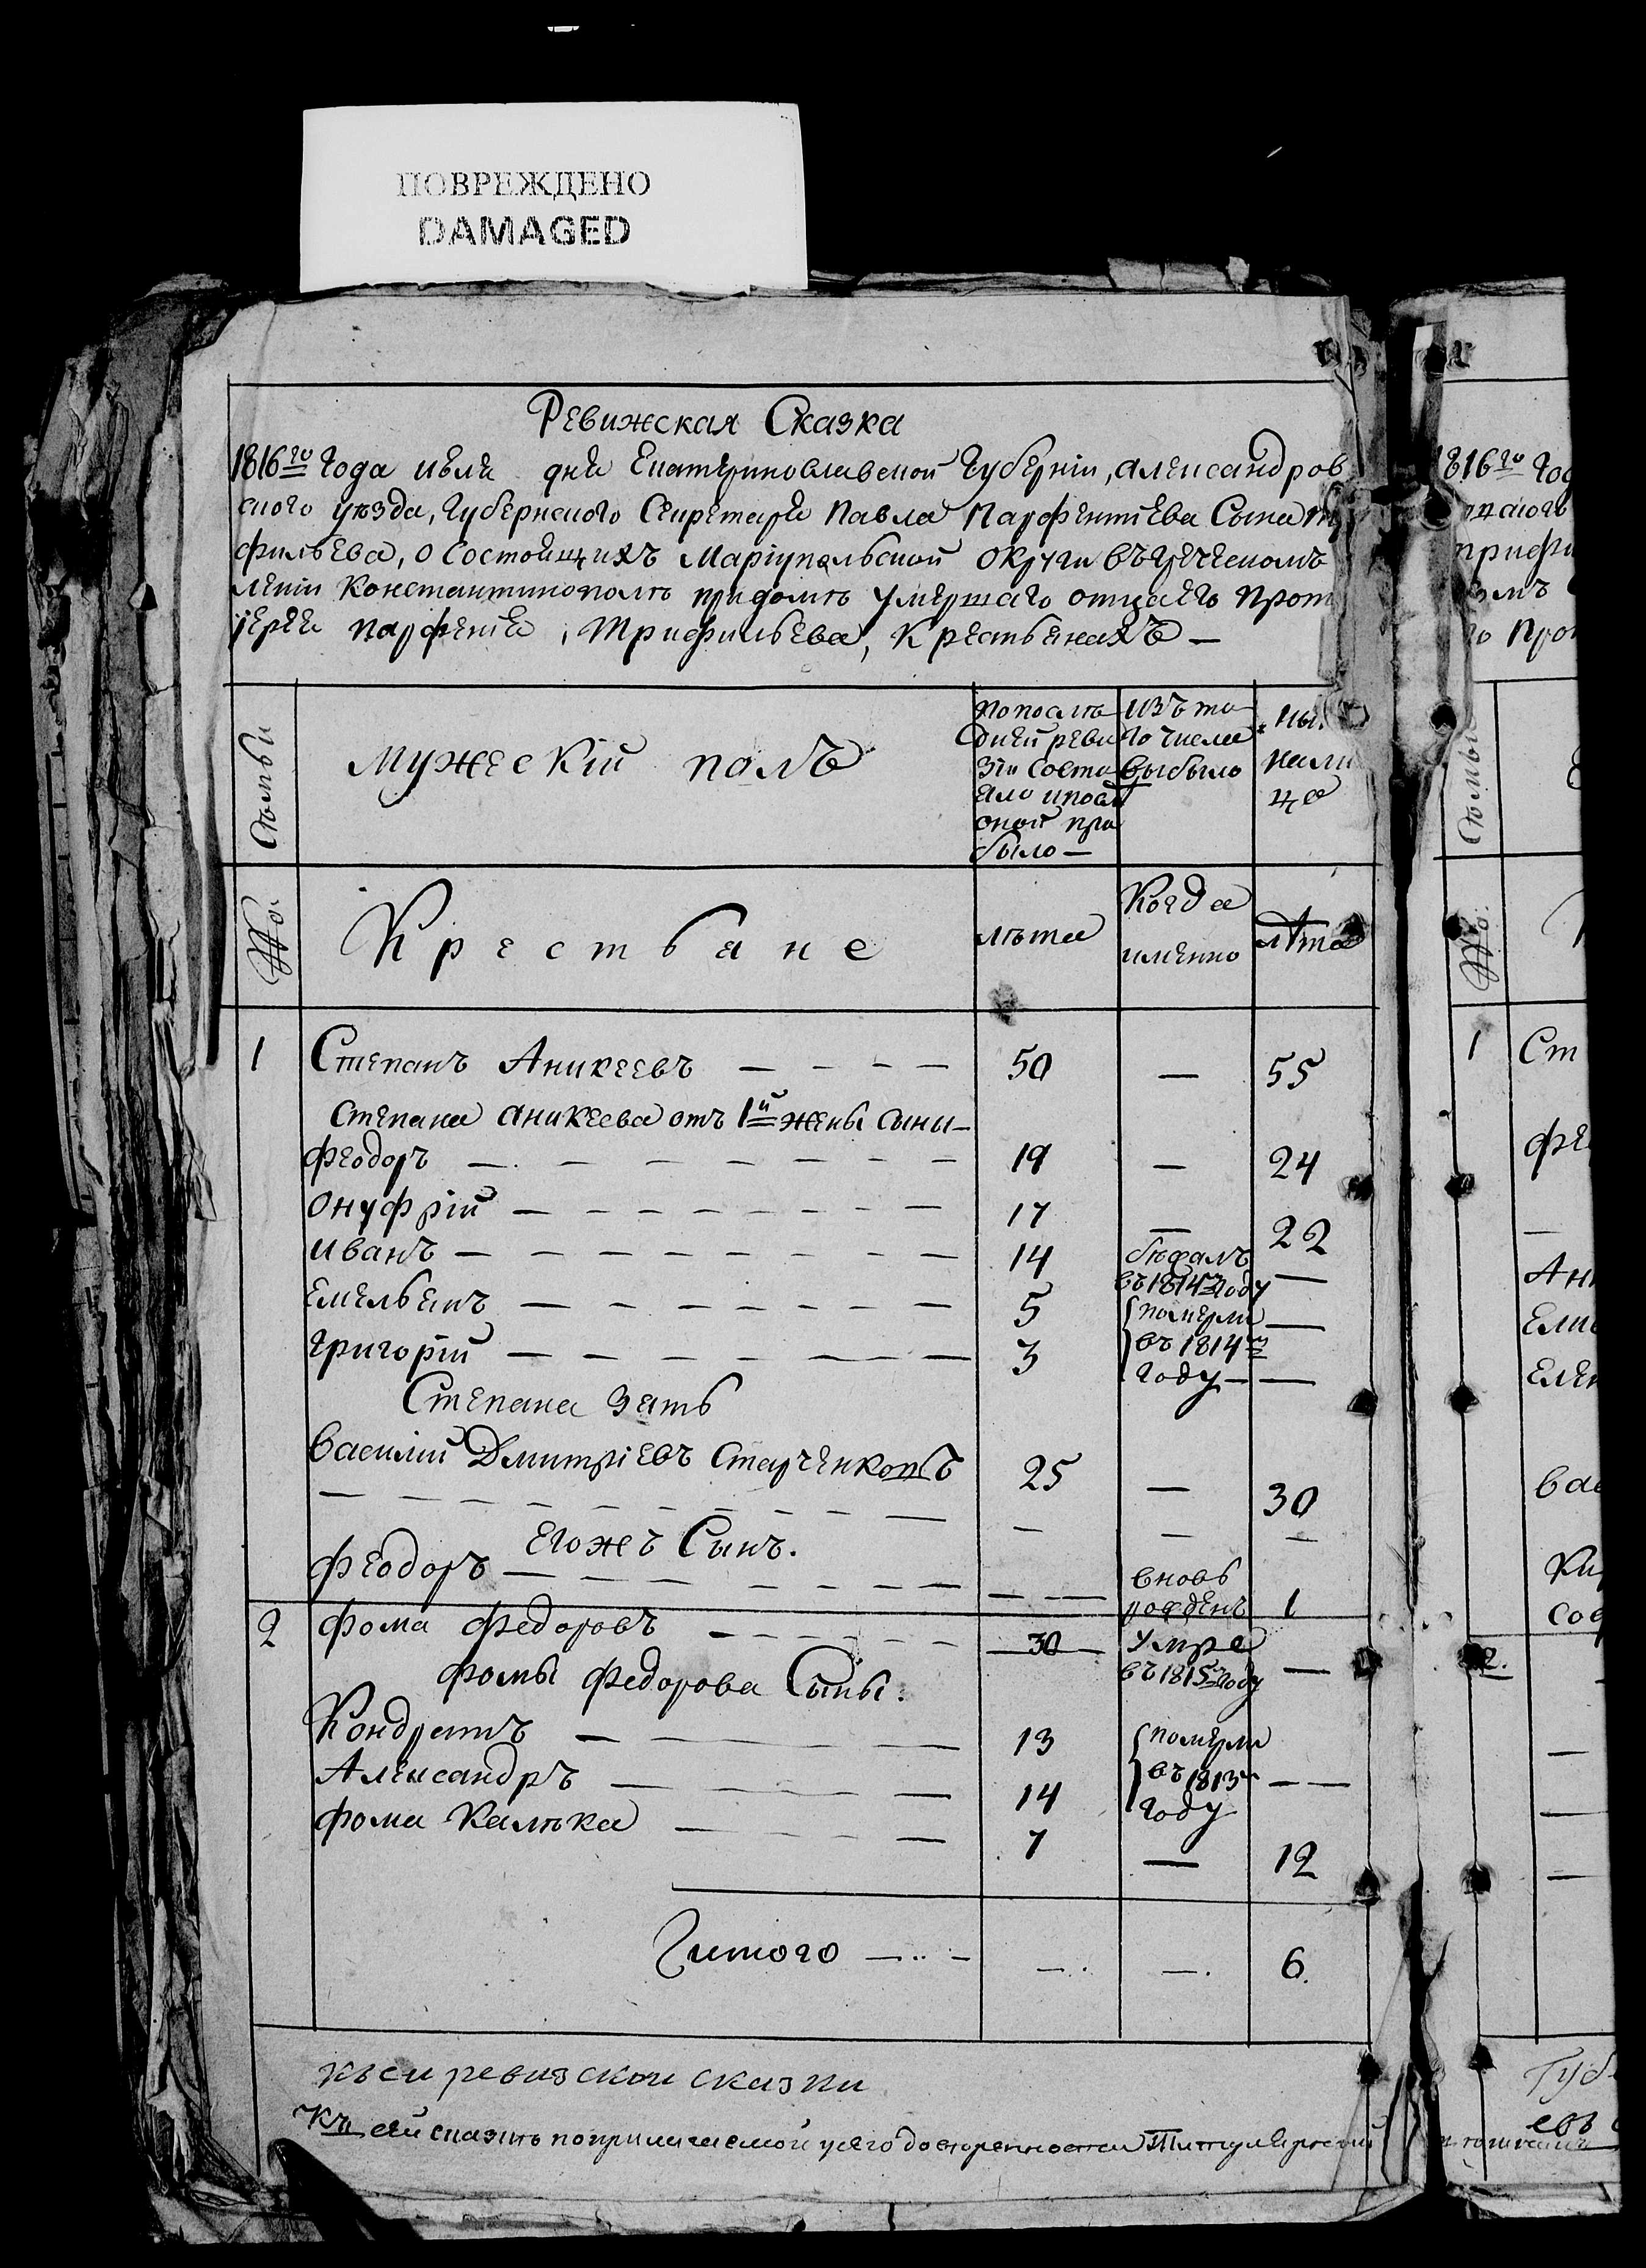 ПОВРЕЖДЕНО
DAMAGED
Ревижская Сказка
1816го Года июля дня Екатеринославской Губернiи, александров
ского уѣзда, Губернского Секретаря Павла Парфентiева Сына
фильева, о Состоящихъ Марiупольской округи въ греческомъ
ленiи Константинополѣ придомѣ умершаго отца его Прот
iерея Парфенiя, Трифильева, Крестьянахъ —
Статьи
Мужескiй полъ
попослѣ
дней реви
зiи состо
яло ипосл
оной при
было —
изъ то
го числа
выбыло
ны
нали
цо
№
Крестьяне
лѣта
Когда
именно
лѣта
1 Степанъ Аникеевъ — — — — 50 — 55
Степана Аникеева отъ 1й жены сыны —
Феодоръ — 19 — 24
Онуфрiй — 17 — 22
Иванъ — 14 бѣжалъ въ 1814м году —
Емельянъ — 5 померли —
Григорiй — 3 въ 1814м году — —
Степана зять
Василий Дмитрiевъ Старченковъ 25 — 30
Егожъ Сынъ.
Феодоръ — — — вновь рожденъ 1
2 Фома Федоровъ — 30 умре въ 1815м году —
Фомы Федорова Сыны:
Кондратъ — 13 померли
Александръ — 14 въ 1813м году — —
Фома Калѣка — 7 — 12
Итого — — — 6.
къ сеи ревизскои сказки
Къ сей сказкѣ
1816го Год
Статьи
№
1 Ст
Фе
Ан
Ели
Елен
Вас
2.
Губ
евъ